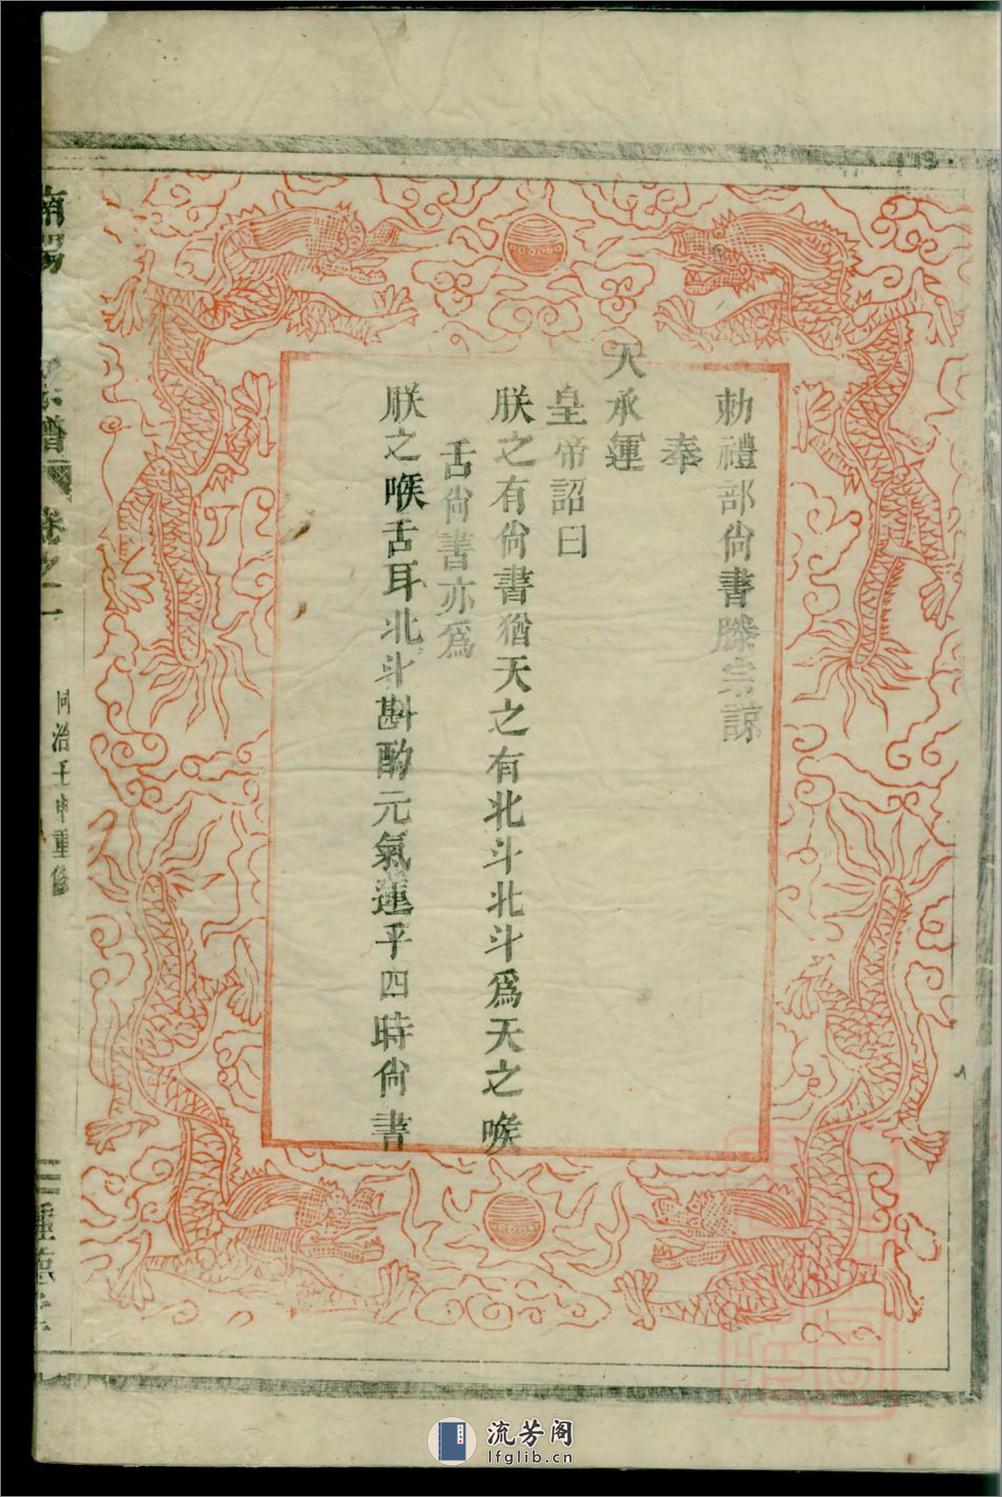 勅禮部尙書滕宗諒
奉
天承運
皇帝詔曰
朕之有尙書猶天之有北斗北斗爲天之喉
舌尙書亦爲
朕之喉舌耳北斗斟酌元氣運乎四時尙書
南陽
宗譜
卷之一
同治壬申重修
種德堂
流芳阁
lfglib.cn